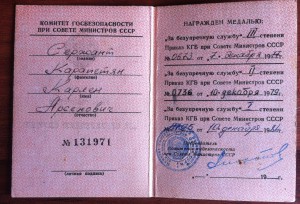 КОМИТЕТ ГОСБЕЗОПАСНОСТИ
ПРИ СОВЕТЕ МИНИСТРОВ СССР
Сержант
(звание)
Карапетян
(фамилия)
Карлен
(имя)
Арсенович
(отчество)
№ 131971
(личная подпись)
НАГРАЖДЕН МЕДАЛЬЮ:
„За безупречную службу“ III степени
Приказ КГБ при Совете Министров СССР
№ от 7 декабря
„За безупречную службу“ II степени
Приказ КГБ при Совете Министров СССР
№ 0736 от 10 декабря 1979 г.
„За безупречную службу“ I степени
Приказ КГБ при Совете Министров СССР
№ от декабря
Председатель
Комитета госбезопасности
при Совете Министров СССР